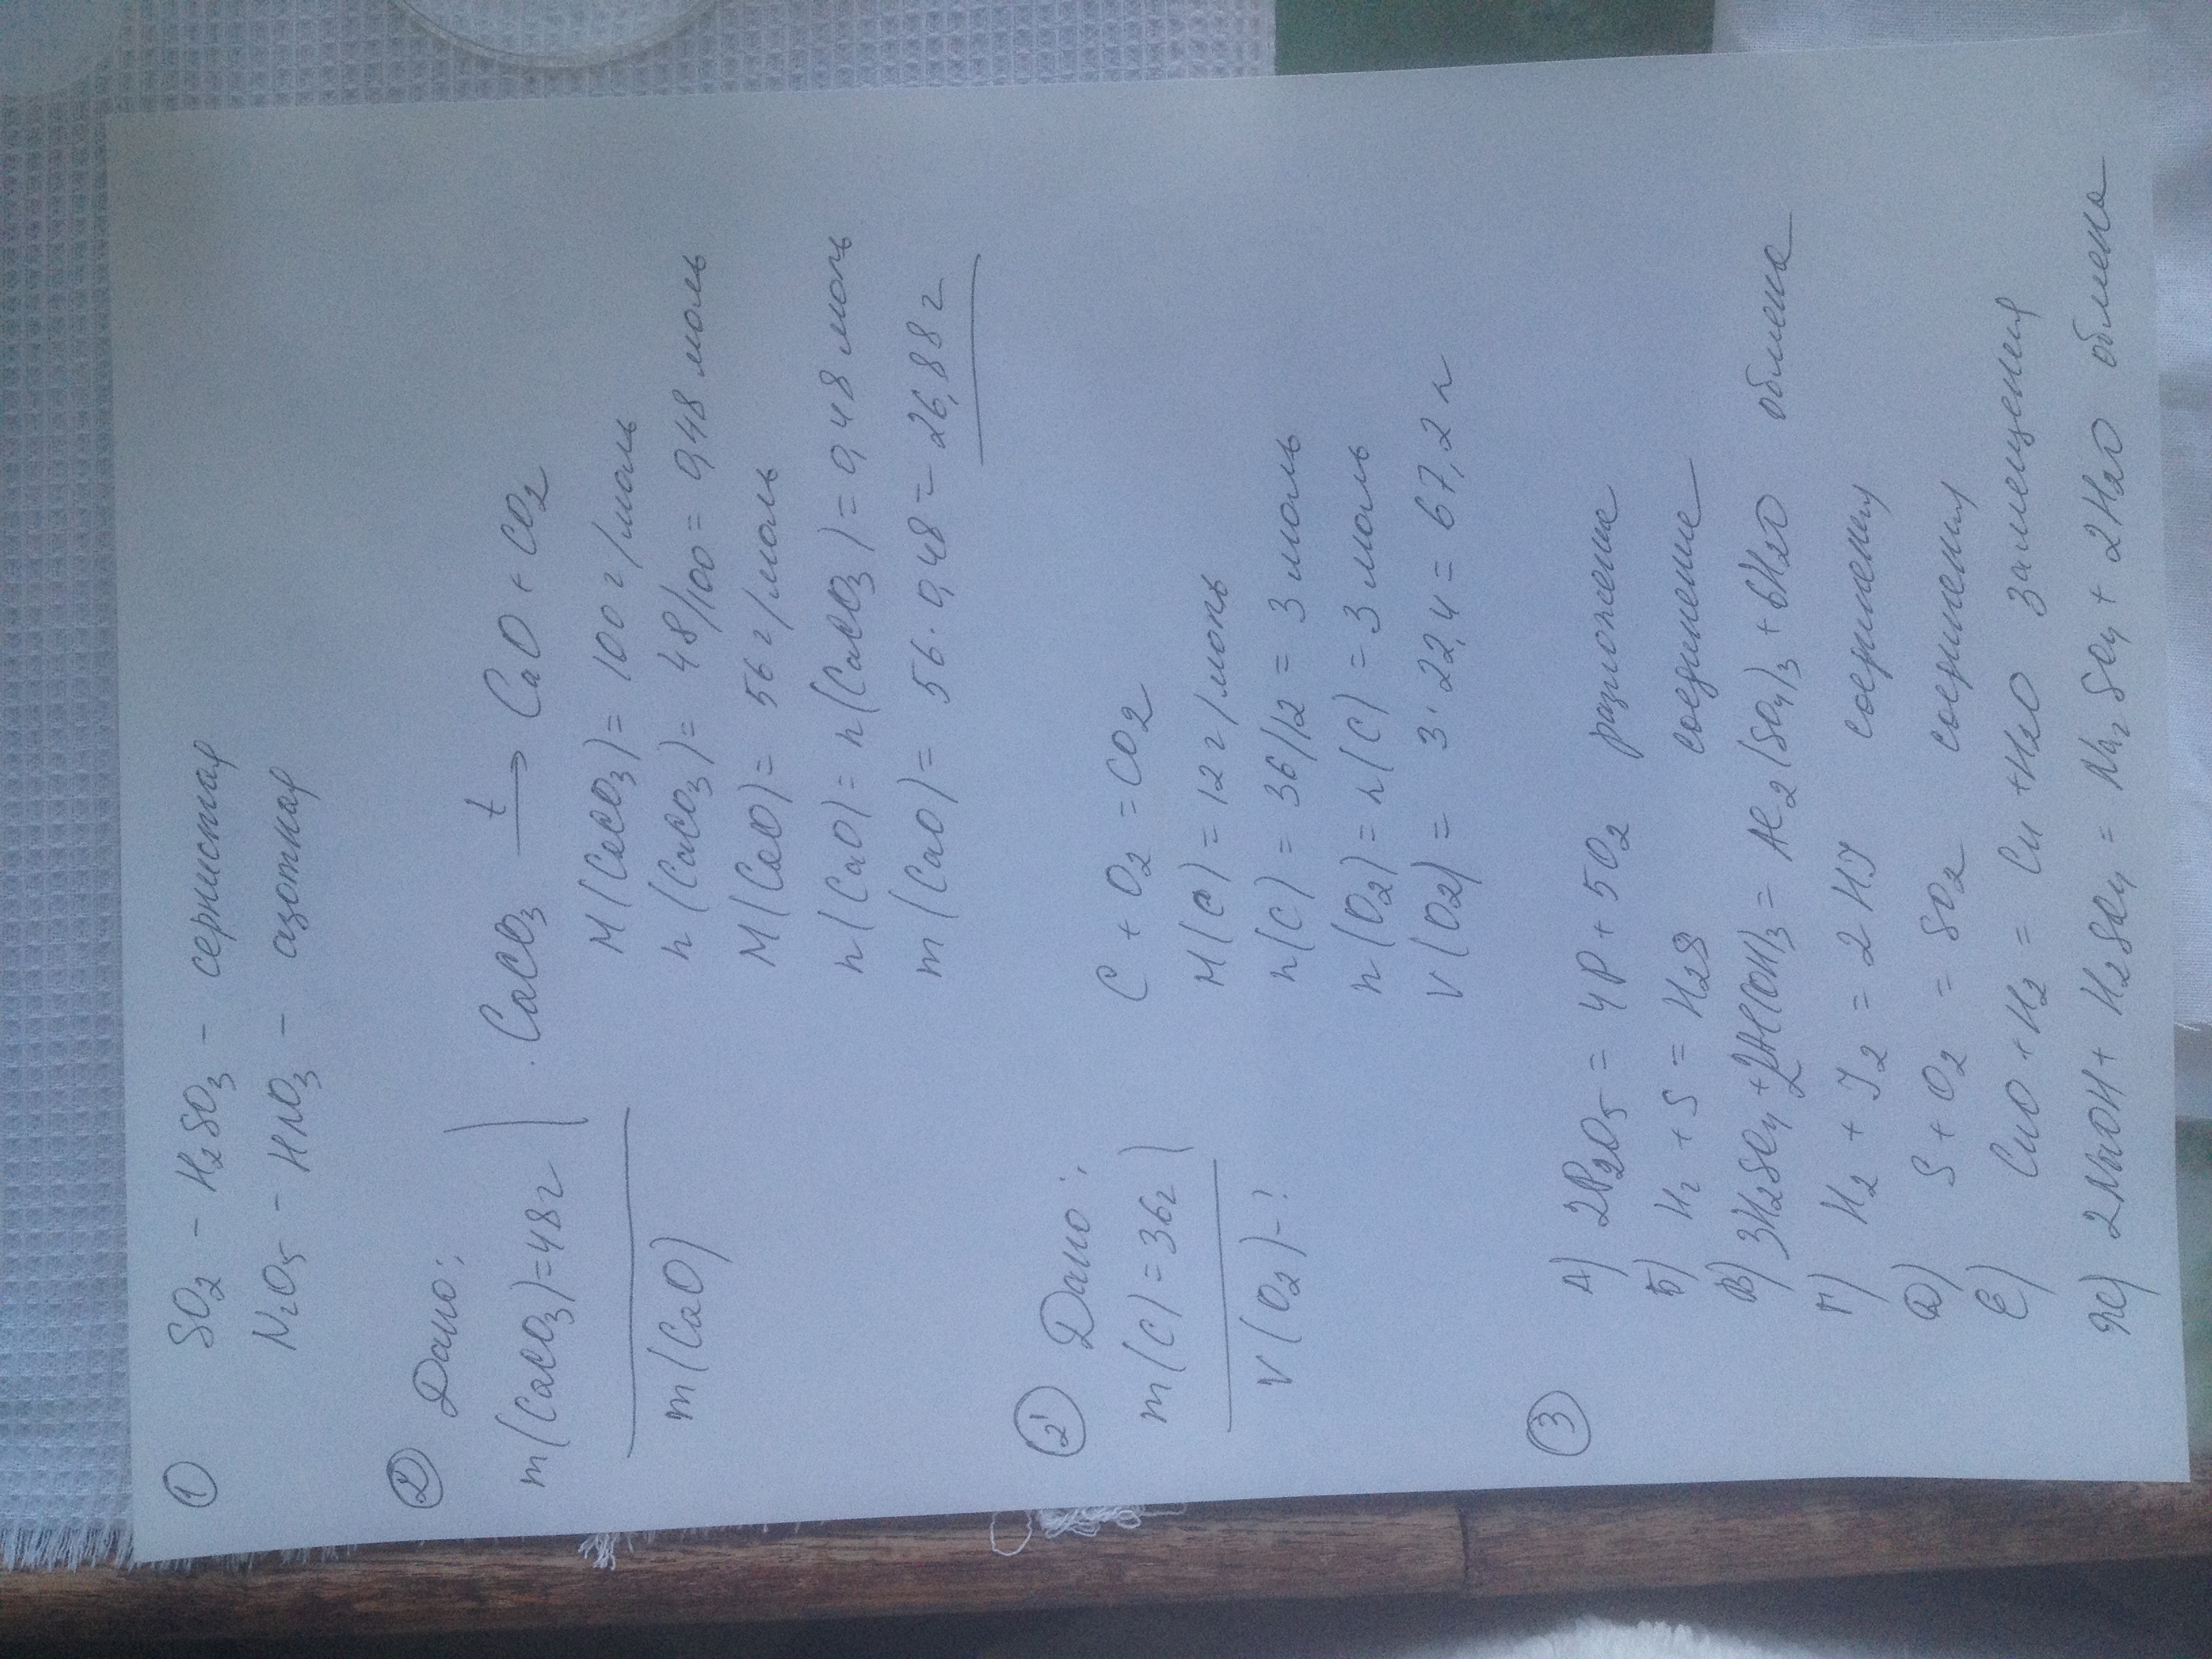 ① SO2 - H2SO3 - сернистая
N2O5 - HNO3 - азотная
② Дано:
m(CaCO3)=48г CaCO3 t→ CaO + CO2
m(CaO)
M(CaCO3) = 100 г/моль
n(CaCO3) = 48/100 = 0,48 моль
M(CaO) = 56 г/моль
n(CaO) = n(CaCO3) = 0,48 моль
m(CaO) = 56 · 0,48 = 26,88 г
②' Дано:
m(C) = 36г
V(O2) - ?
C + O2 = CO2
M(C) = 12 г/моль
n(C) = 36/12 = 3 моль
n(O2) = n(C) = 3 моль
V(O2) = 3 · 22,4 = 67,2 л
③ А) 2P2O5 = 4P + 5O2 разложение
Б) H2 + S = H2S соединение
В) 3H2SO4 + 2Al(OH)3 = Al2(SO4)3 + 6H2O обмена
Г) H2 + J2 = 2HJ соединения
Д) S + O2 = SO2 соединения
Е) CuO + H2 = Cu + H2O замещения
Ж) 2NaOH + H2SO4 = Na2SO4 + 2H2O обмена